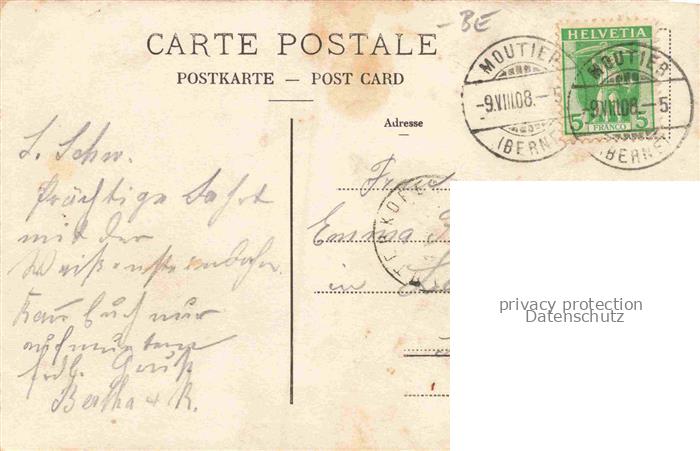 -BE
CARTE POSTALE
POSTKARTE — POST CARD
Adresse
HELVETIA
5 FRANCO 5
MOUTIER
-9.VIII.08.-5
(BERNE)
MOUTIER
-9.VIII.08.-5
(BERNE)
L. Schw.
Prächtige Fahrt
mit der
Weißensteinbahn.
Kann Euch nur
aufmuntern
frdl. Gruß
Bertha & R.
Frau
Emma
in
privacy protection
Datenschutz